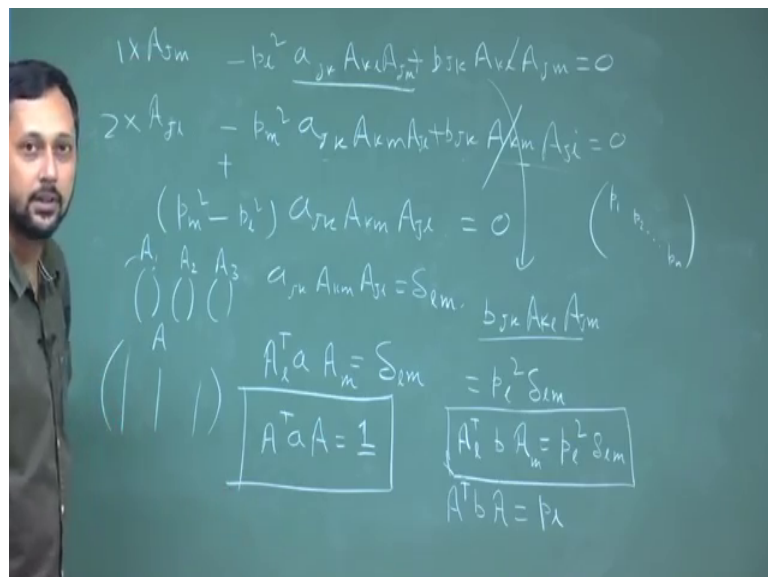 1 x A_{jm} - p_l^2 a_{jk} A_{kl} A_{jm} + b_{jk} A_{kl} A_{jm} = 0
2 x A_{jl} - p_m^2 a_{jk} A_{km} A_{jl} + b_{jk} A_{km} A_{jl} = 0
+
(p_m^2 - p_l^2) a_{jk} A_{km} A_{jl} = 0
(p_1 p_2 ... p_n)
A_1 A_2 A_3
( ) ( ) ( )
a_{jk} A_{km} A_{jl} = δ_{lm}.
b_{jk} A_{kl} A_{jm}
= p_l^2 δ_{lm}
A
( | | | )
A_l^T a A_m = δ_{lm}
A^T a A = 1
A_l^T b A_m = p_l^2 δ_{lm}
A^T b A = p_l